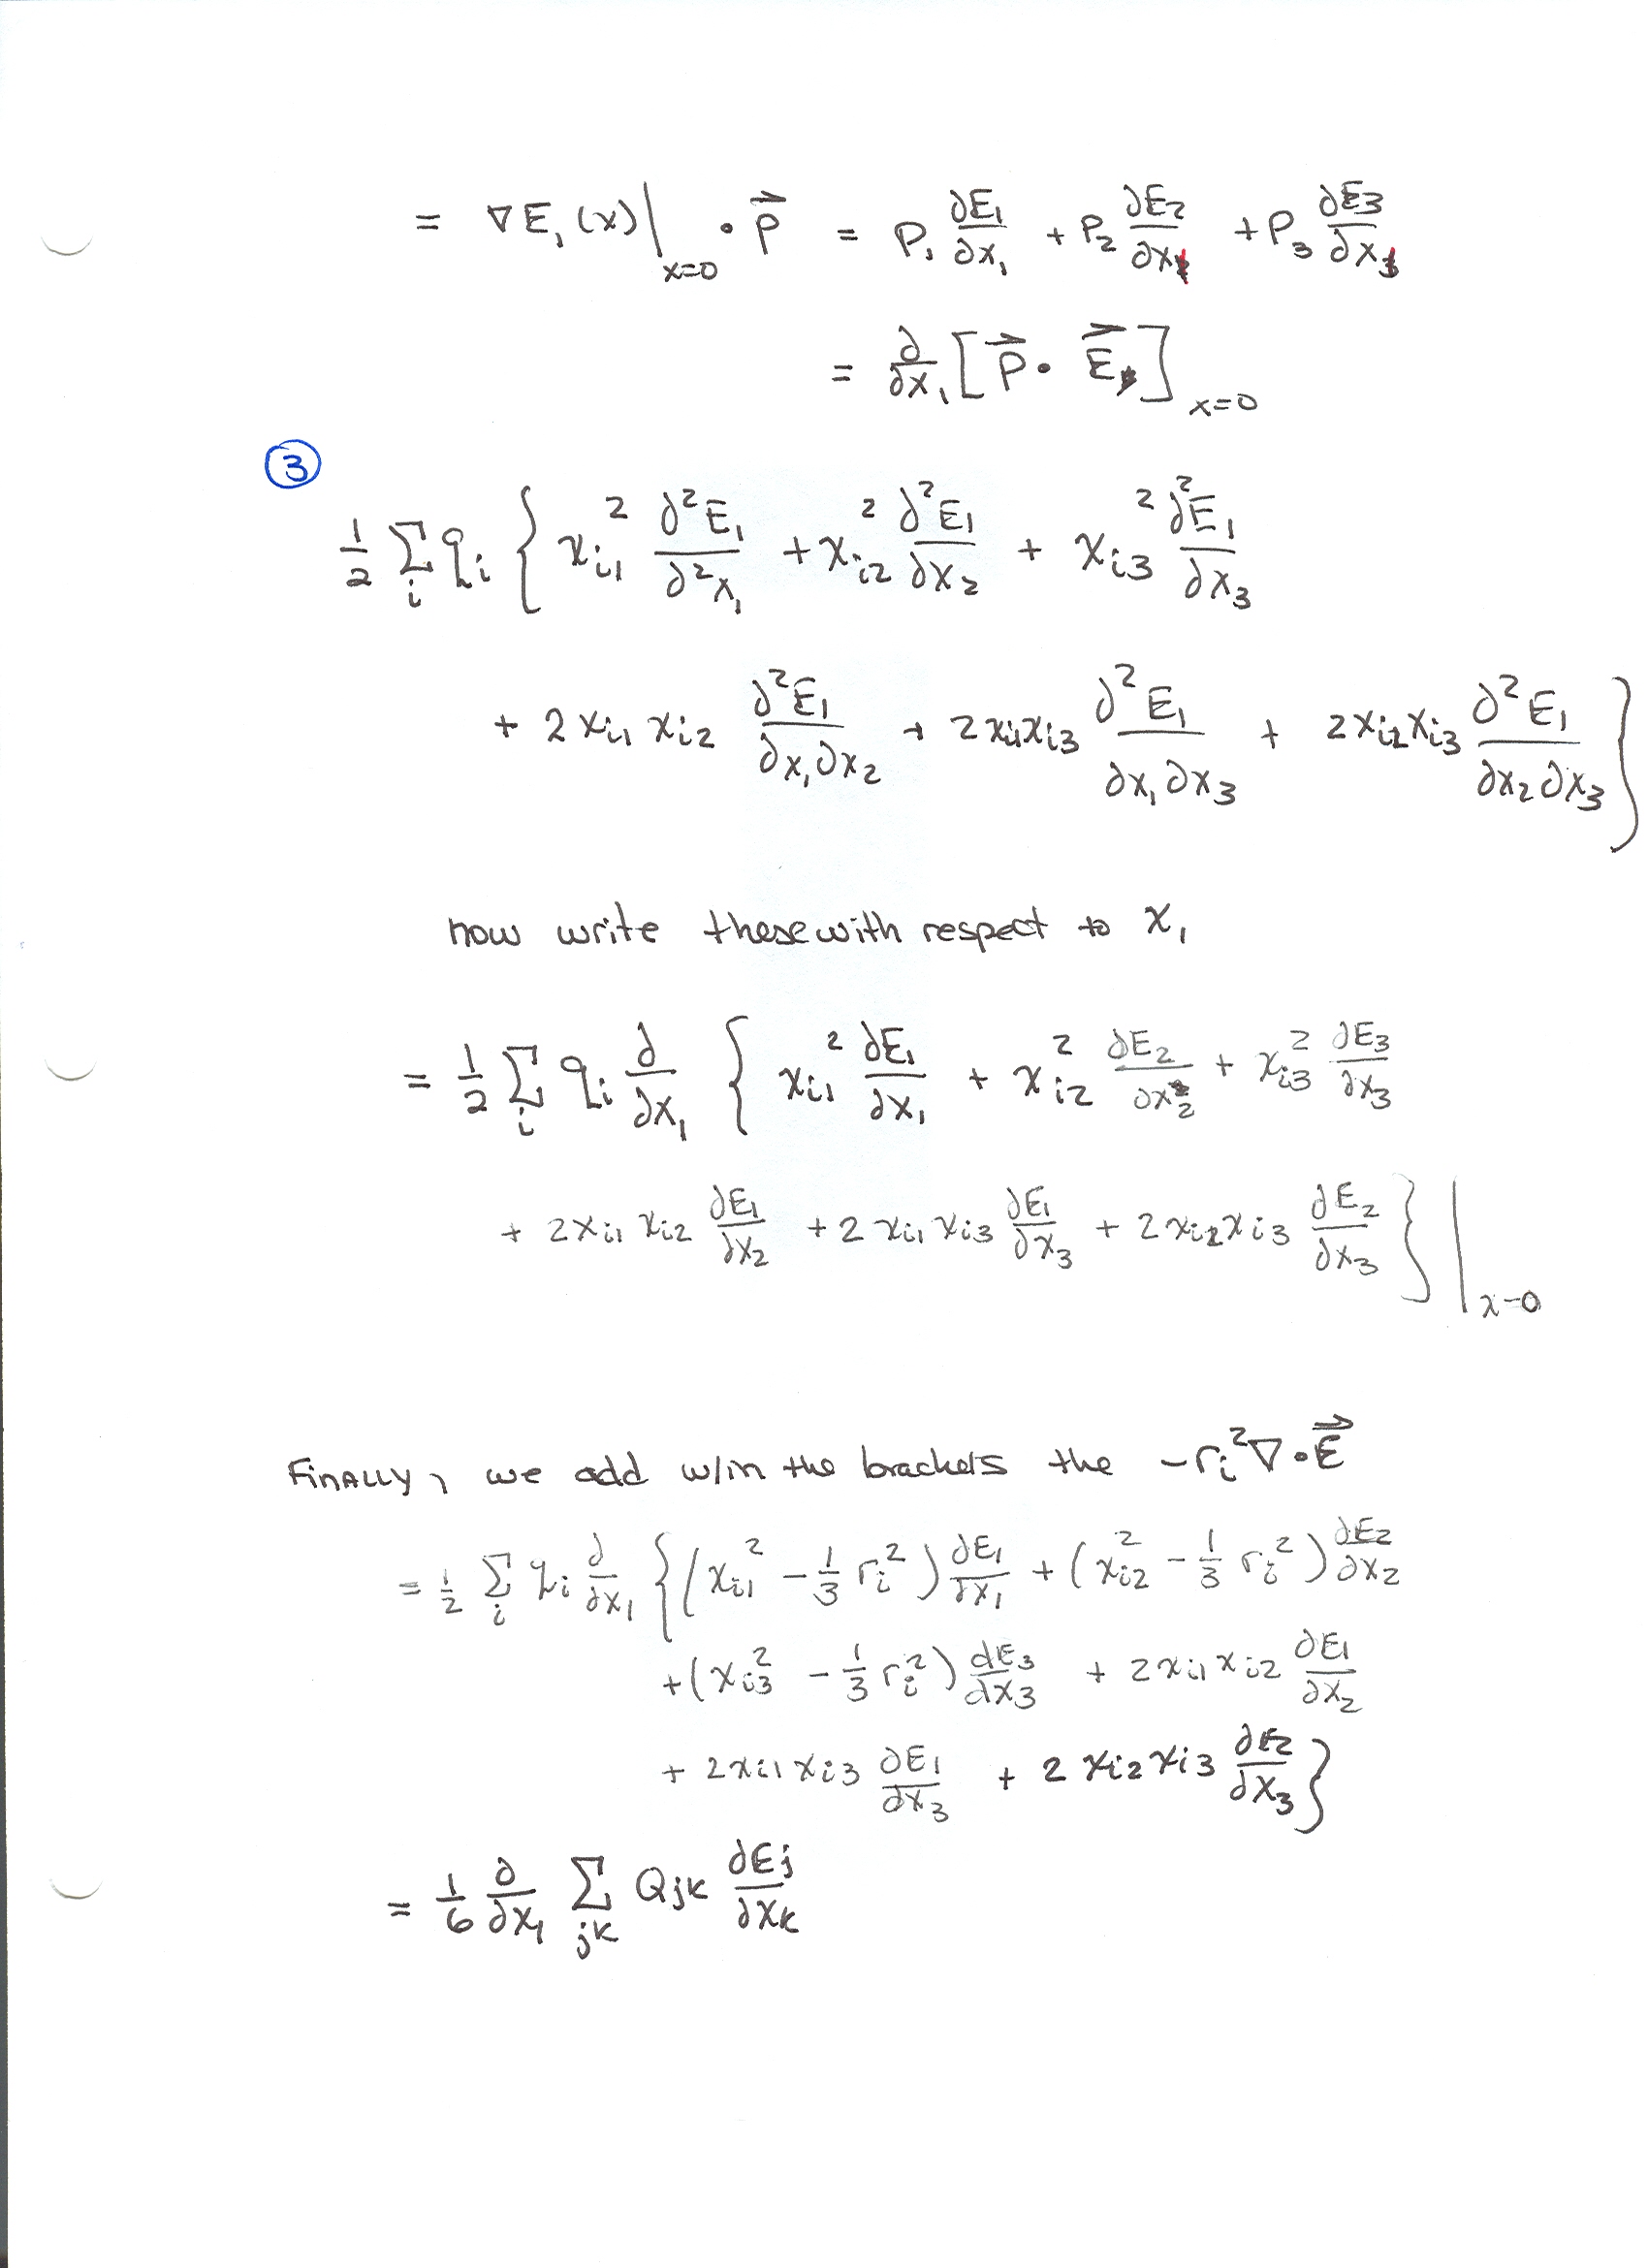 = ∇E₁(x)|ₓ₌₀ · P⃗ = P₁ ∂E₁/∂x₁ + P₂ ∂E₂/∂x₁ + P₃ ∂E3/∂x₁
= ∂/∂x₁ [P⃗ · E⃗]ₓ₌₀
③
1/2 Σᵢ qᵢ { xᵢ₁² ∂²E₁/∂²x₁ + xᵢ₂² ∂²E₁/∂x₂ + xᵢ₃² ∂²E₁/∂x₃
+ 2xᵢ₁ xᵢ₂ ∂²E₁/∂x₁∂x₂ + 2xᵢ₁xᵢ₃ ∂²E₁/∂x₁∂x₃ + 2xᵢ₂xᵢ₃ ∂²E₁/∂x₂∂x₃ }
now write these with respect to x₁
= 1/2 Σᵢ qᵢ ∂/∂x₁ { xᵢ₁² ∂E₁/∂x₁ + xᵢ₂² ∂E₂/∂x₂ + xᵢ₃² ∂E₃/∂x₃
+ 2xᵢ₁ xᵢ₂ ∂E₁/∂x₂ + 2xᵢ₁xᵢ₃ ∂E₁/∂x₃ + 2xᵢ₂xᵢ₃ ∂E₂/∂x₃ }|ₓ₌₀
FINALLY, we add w/in the brackets the -rᵢ²∇·E⃗
= 1/2 Σᵢ qᵢ ∂/∂x₁ {(xᵢ₁² - 1/3 rᵢ²) ∂E₁/∂x₁ + (xᵢ₂² - 1/3 rᵢ²) ∂E₂/∂x₂
+(xᵢ₃² - 1/3 rᵢ²) dE₃/dx₃ + 2xᵢ₁xᵢ₂ ∂E₁/∂x₂
+ 2xᵢ₁xᵢ₃ ∂E₁/∂x₃ + 2xᵢ₂xᵢ₃ ∂E₂/∂x₃ }
= 1/6 ∂/∂x₁ Σⱼₖ Qⱼₖ ∂Eⱼ/∂xₖ